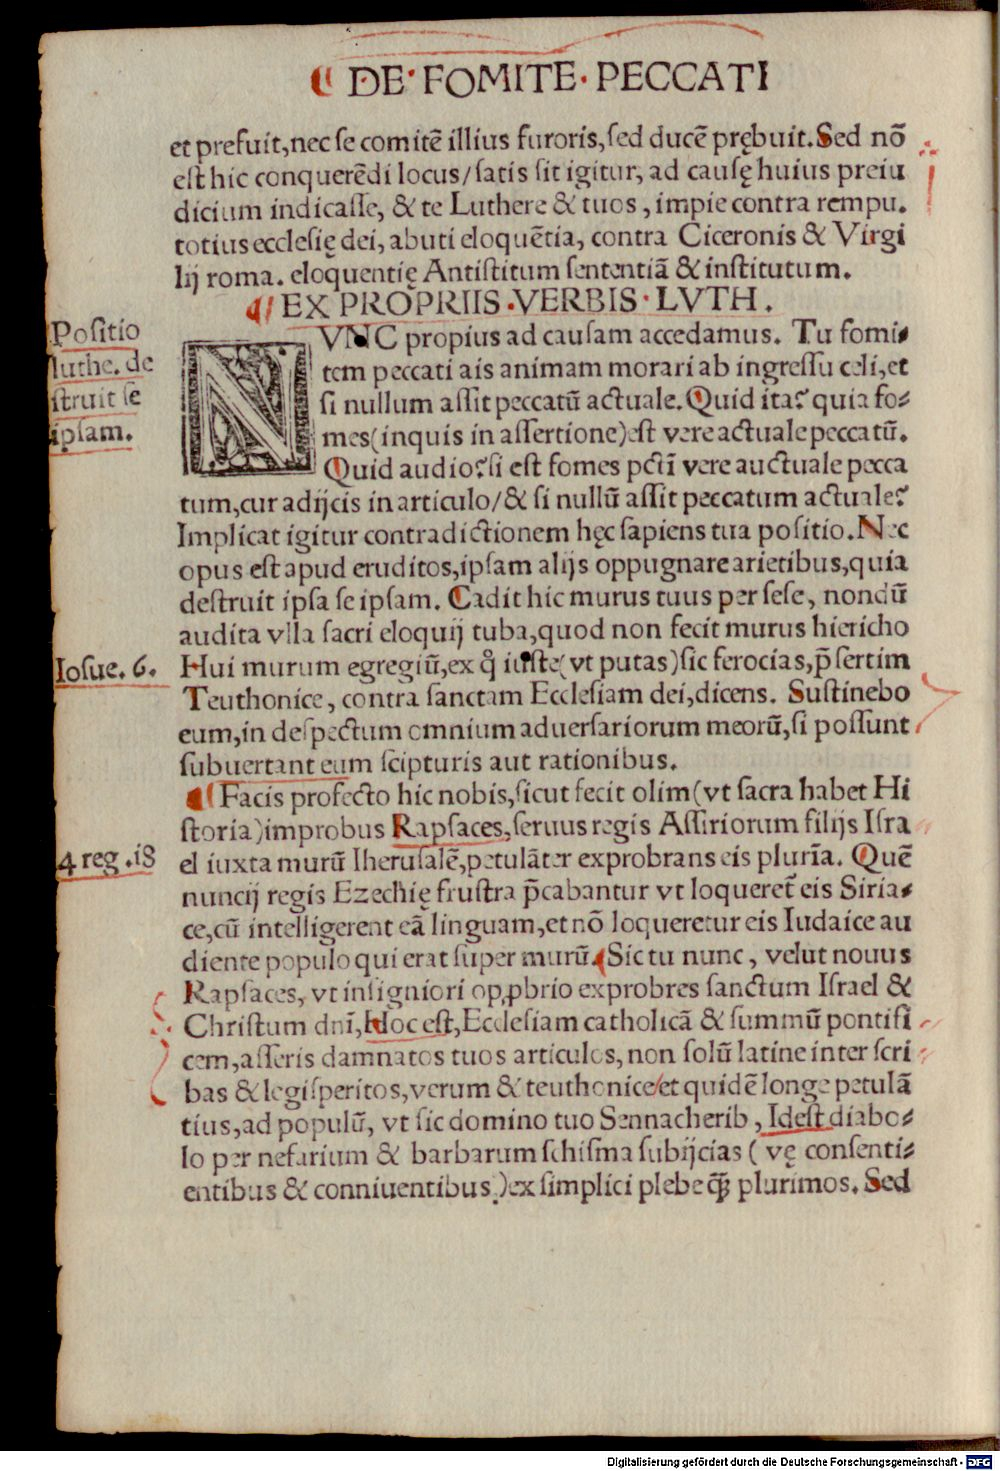 DE·FOMITE·PECCATI
et prefuit,nec se comitē illius furoris,sed ducē prębuit.Sed nō
est hic conquerēdi locus/satis sit igitur, ad causę huius preiu
dicium indicasse, & te Luthere & tuos , impie contra rempu.
totius ecclesię dei, abuti eloquētia, contra Ciceronis & Virgi
lij roma. eloquentię Antistitum sententiā & institutum.
EX PROPRIIS·VERBIS·LVTH.
Positio
luthe. de
struit se
ipsam.
NVNC propius ad causam accedamus. Tu fomi-
tem peccati ais animam morari ab ingressu celi,et
si nullum assit peccatū actuale.Quid ita? quia fo-
mes(inquis in assertione)est vere actuale peccatū.
Quid audio?si est fomes pctī vere auctuale pecca
tum,cur adijcis in articulo/& si nullū assit peccatum actuale?
Implicat igitur contradictionem hęc sapiens tua positio.Nec
opus est apud eruditos,ipsam alijs oppugnare arietibus,quia
destruit ipsa se ipsam. Cadit hic murus tuus per sese, nondū
audita vlla sacri eloquij tuba,quod non fecit murus hiericho
Iosue. 6.
Hui murum egregiū,ex q̊ iuste(vt putas)sic ferocias,p̄sertim
Teuthonice, contra sanctam Ecclesiam dei,dicens. Sustinebo
eum,in despectum omnium aduersariorum meorū,si possunt
subuertant eum scipturis aut rationibus.
Facis profecto hic nobis,sicut fecit olim(vt sacra habet Hi
storia)improbus Rapsaces,seruus regis Assiriorum filijs Isra
4 reg .i8
el iuxta murū Iherusalē,petulāter exprobrans eis plurīa. Quē
nuncij regis Ezechię frustra p̄cabantur vt loqueret̄ eis Siria-
ce,cū intelligerent eā linguam,et nō loqueretur eis Iudaice au
diente populo qui erat super murū.Sic tu nunc, velut nouus
Rapsaces, vt insigniori opꝓbrio exprobres sanctum Israel &
Christum dnī,Hoc est,Ecclesiam catholicā & summū pontifi
cem,asseris damnatos tuos articulos, non solū latine inter scri
bas & legisperitos,verum & teuthonice/et quidē longe petulā
tius,ad populū, vt sic domino tuo Sennacherib , Idest diabo-
lo per nefarium & barbarum schisma subijcias ( vę consenti-
entibus & conniuentibus)ex simplici plebe q̄ꝫ plurimos. Sed
Digitalisierung gefördert durch die Deutsche Forschungsgemeinschaft - DFG